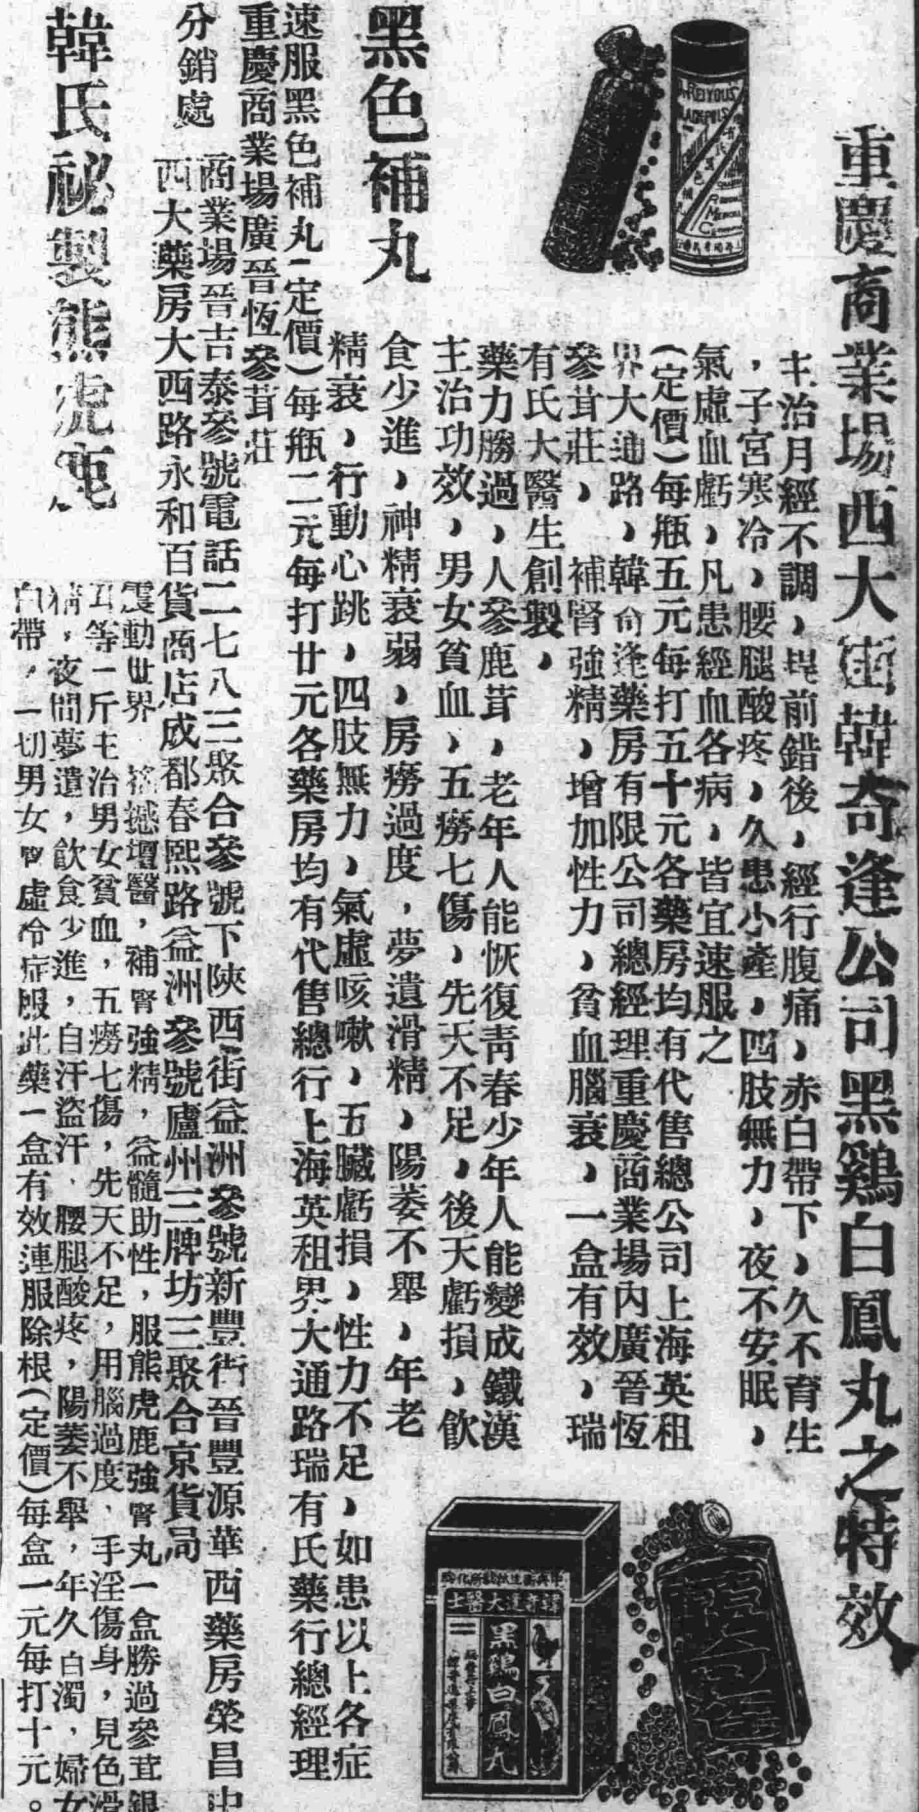 重慶商業場西大街韓奇逢公司黑鷄白鳳丸之特效
主治月經不調，提前錯後，經行腹痛，赤白帶下，久不育生
，子宮寒冷，腰腿酸疼，久患小產，四肢無力，夜不安眠，
氣虛血虧，凡患經血各病，皆宜速服之
(定價)每瓶五元每打五十元各藥房均有代售總公司上海英租
界大通路，韓奇逢藥房有限公司總經理重慶商業場內廣晉恆
參茸莊，
補腎強精，增加性力，貧血腦衰，一盒有效，瑞
有氏大醫生創製，
藥力勝過，人參鹿茸，老年人能恢復青春少年人能變成鐵漢
主治功效，男女貧血，五癆七傷，先天不足，後天虧損，飲
食少進，神精衰弱，房癆過度，夢遺滑精，陽萎不舉，年老
精衰，行動心跳，四肢無力，氣虛咳嗽，五臟虧損，性力不足，如患以上各症
黑色補丸
速服黑色補丸(定價)每瓶二元每打廿元各藥房均有代售總行上海英租界大通路瑞有氏藥行總經理
重慶商業場廣晉恆參茸莊
分銷處
商業場晉吉泰參號電話二七八三聚合參號下陝西街益洲參號新豐街晉豐源華西藥房榮昌中
西大藥房大西路永和百貨商店成都春熙路益洲參號廬州三牌坊三聚合京貨局
韓氏祕製熊虎鹿
震動世界，搖撼壇醫，補腎強精，益髓助性，服熊虎鹿強腎丸一盒勝過參茸銀
耳等一斤主治男女貧血，五癆七傷，先天不足，用腦過度，手淫傷身，見色滑
精，夜間夢遺，飲食少進，自汗盜汗，腰腿酸疼，陽萎不舉，年久白濁，婦女
白帶，一切男女虛冷症服此藥一盒有效連服除根(定價)每盒一元每打十元。
黑鷄白鳳丸